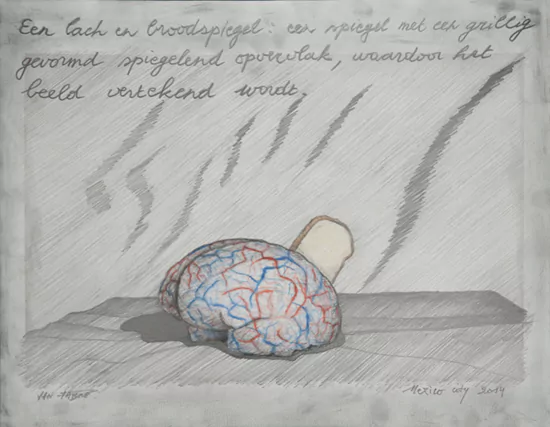 Een lach en broodspiegel: een spiegel met een grillig
gevormd spiegelend oppervlak, waardoor het
beeld vertekend wordt.
VAN
Mexico city 2014